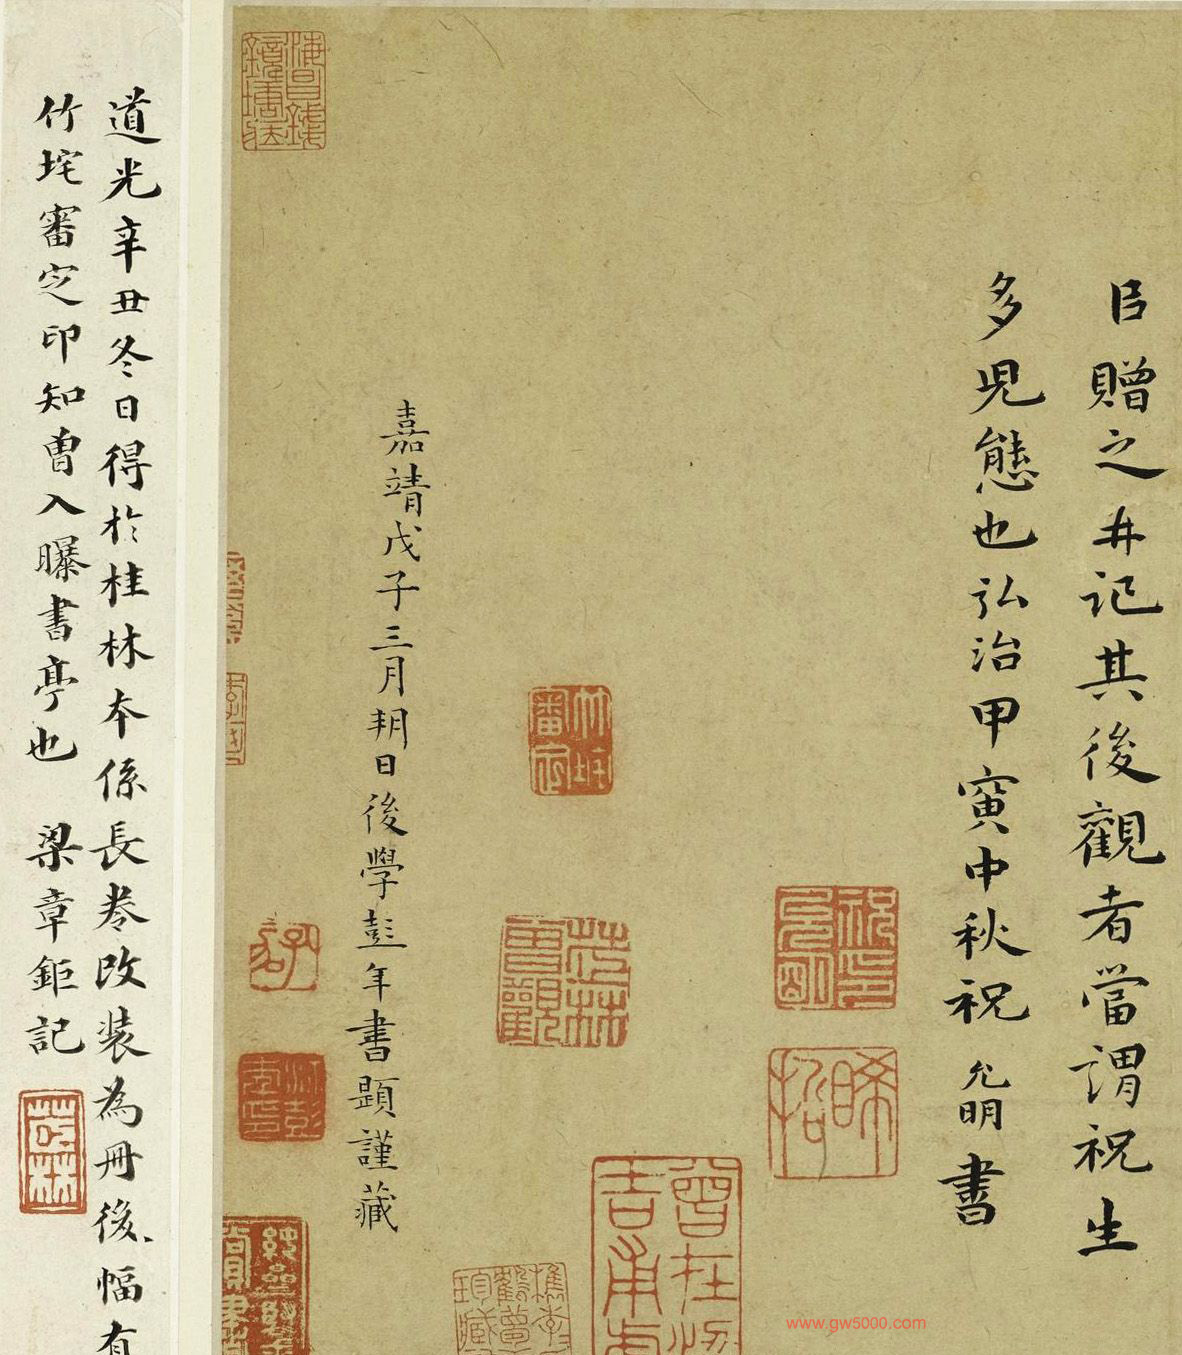 臣贈之并記其後觀者當謂祝生
多児態也弘治甲寅中秋祝
允明書
嘉靖戊子三月朔日後學彭年書題謹藏
道光辛丑冬日得於桂林本係長卷改装為冊後幅有
竹垞審定印知曾入曝書亭也 梁章鉅記
竹垞
審定
茝林
曾觀
祝允明印
晞哲
茝林
www.gw5000.com